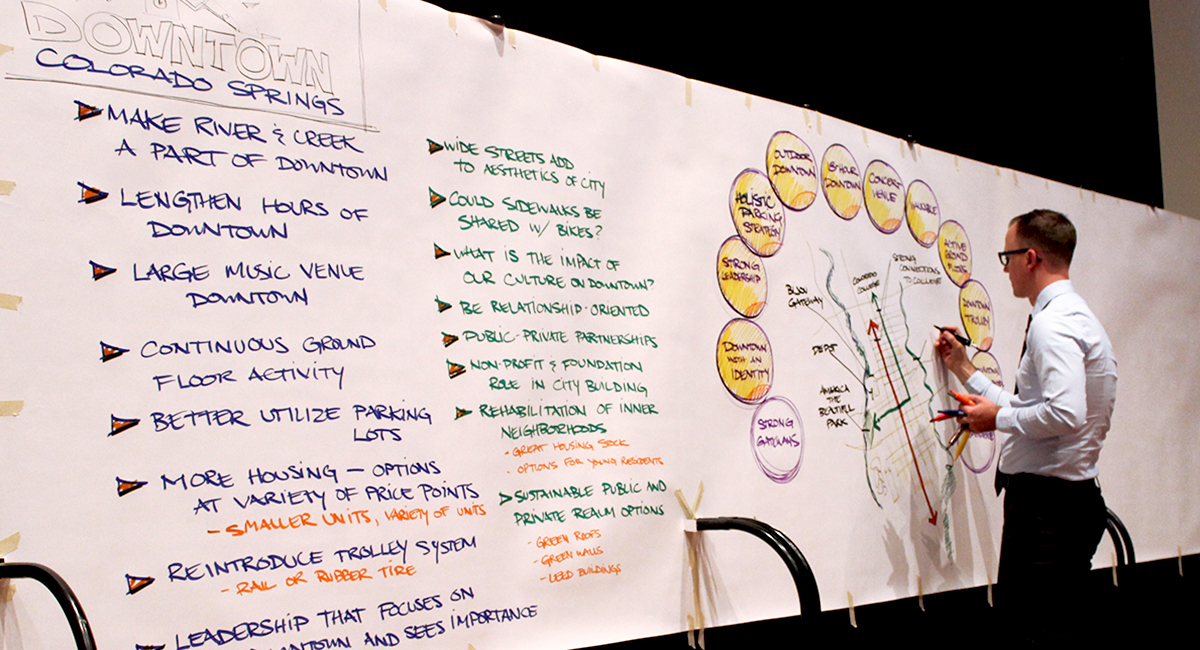 DOWNTOWN
COLORADO SPRINGS
MAKE RIVER & CREEK
A PART OF DOWNTOWN
LENGTHEN HOURS OF
DOWNTOWN
LARGE MUSIC VENUE
DOWNTOWN
CONTINUOUS GROUND
FLOOR ACTIVITY
BETTER UTILIZE PARKING
LOTS
MORE HOUSING — OPTIONS
AT VARIETY OF PRICE POINTS
- SMALLER UNITS, VARIETY OF UNITS
REINTRODUCE TROLLEY SYSTEM
- RAIL OR RUBBER TIRE
LEADERSHIP THAT FOCUSES ON
DOWNTOWN AND SEES IMPORTANCE
WIDE STREETS ADD
TO AESTHETICS OF CITY
COULD SIDEWALKS BE
SHARED W/ BIKES?
WHAT IS THE IMPACT OF
OUR CULTURE ON DOWNTOWN?
BE RELATIONSHIP-ORIENTED
PUBLIC-PRIVATE PARTNERSHIPS
NON-PROFIT & FOUNDATION
ROLE IN CITY BUILDING
REHABILITATION OF INNER
NEIGHBORHOODS
- GREAT HOUSING STOCK
- OPTIONS FOR YOUNG RESIDENTS
SUSTAINABLE PUBLIC AND
PRIVATE REALM OPTIONS
- GREEN ROOFS
- GREEN WALLS
- LEED BUILDINGS
STRONG
GATEWAYS
DOWNTOWN
WITH AN
IDENTITY
STRONG
LEADERSHIP
HOLISTIC
PARKING
STRATEGY
OUTDOOR
DOWNTOWN
18-HOUR
DOWNTOWN
CONCERT
VENUE
WALKABLE
ACTIVE
GROUND
FLOORS
DOWNTOWN
TROLLEY
BIJOU
GATEWAY
DEPOT
AMERICA
THE
BEAUTIFUL
PARK
COLORADO
COLLEGE
STRONG
CONNECTIONS
TO COLLEGE